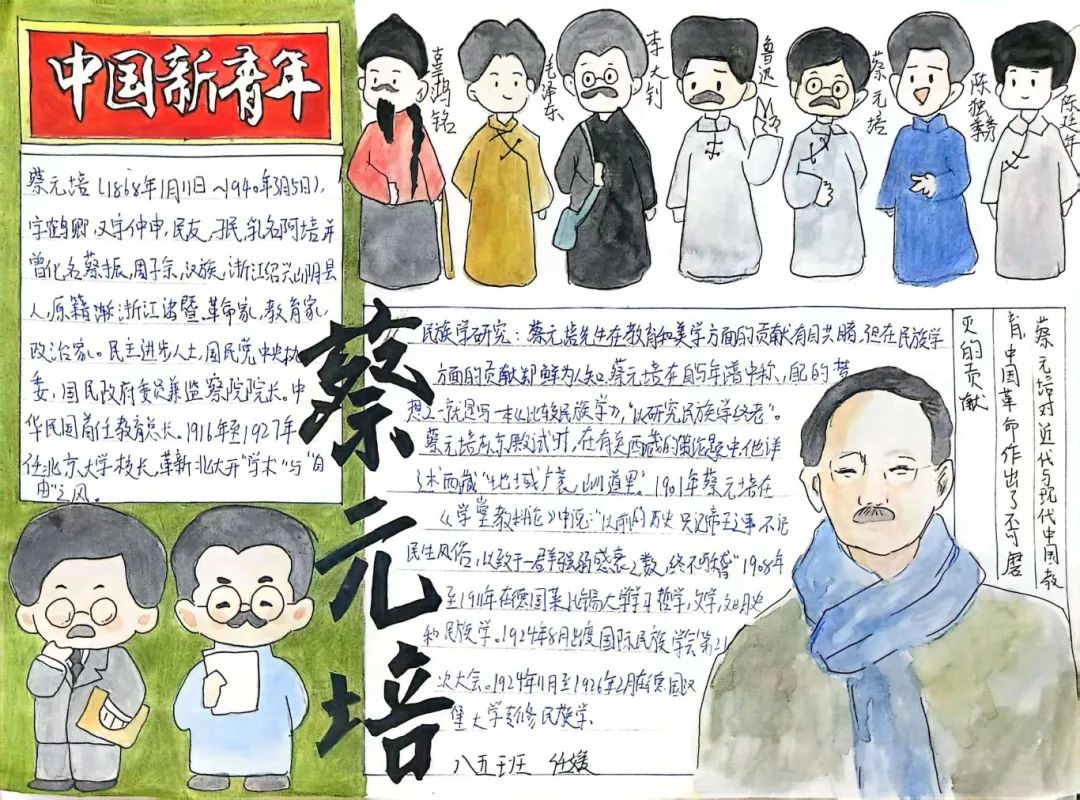 中国新青年
蔡元培(1868年1月11日~1940年3月5日),
字鹤卿,又字仲申,民友,孑民,乳名阿培并
曾化名蔡振,周子余,汉族,浙江绍兴山阴县
人,原籍浙江诸暨。革命家,教育家,
政治家。民主进步人士,国民党中央执
委,国民政府委员兼监察院院长。中
华民国首任教育总长。1916年至1927年
任北京大学校长,革新北大开"学术"与"自
由"之风。
辜鸿铭
毛泽东
李大钊
鲁迅
蔡元培
陈独秀
陈延年
蔡元培
民族学研究:蔡元培先生在教育和美学方面的贡献有目共睹,但在民族学
方面的贡献却鲜为人知。蔡元培在自写年谱中称,
想之一就是写一本《比较民族学》,"以研究民族学终老"。
蔡元培在殿试时,在有关西藏的策论题中,他详
述西藏"地域广袤,山川道里"。1901年蔡元培在
《学堂教科论》中说:"以前的历史只记帝王之事不记
民生风俗,以致于一群强弱盛衰之数,终不可稽"1908年
至1911年在德国莱比锡大学学习哲学,文学,文明史
和民族学。1924年8月出度国际民族学会第21
次大会。1924年11月至1926年2月在德国汉
堡大学专修民族学。
八五班 任媛
蔡元培对近代与现代中国教
育,中国革命作出了不可磨
灭的贡献